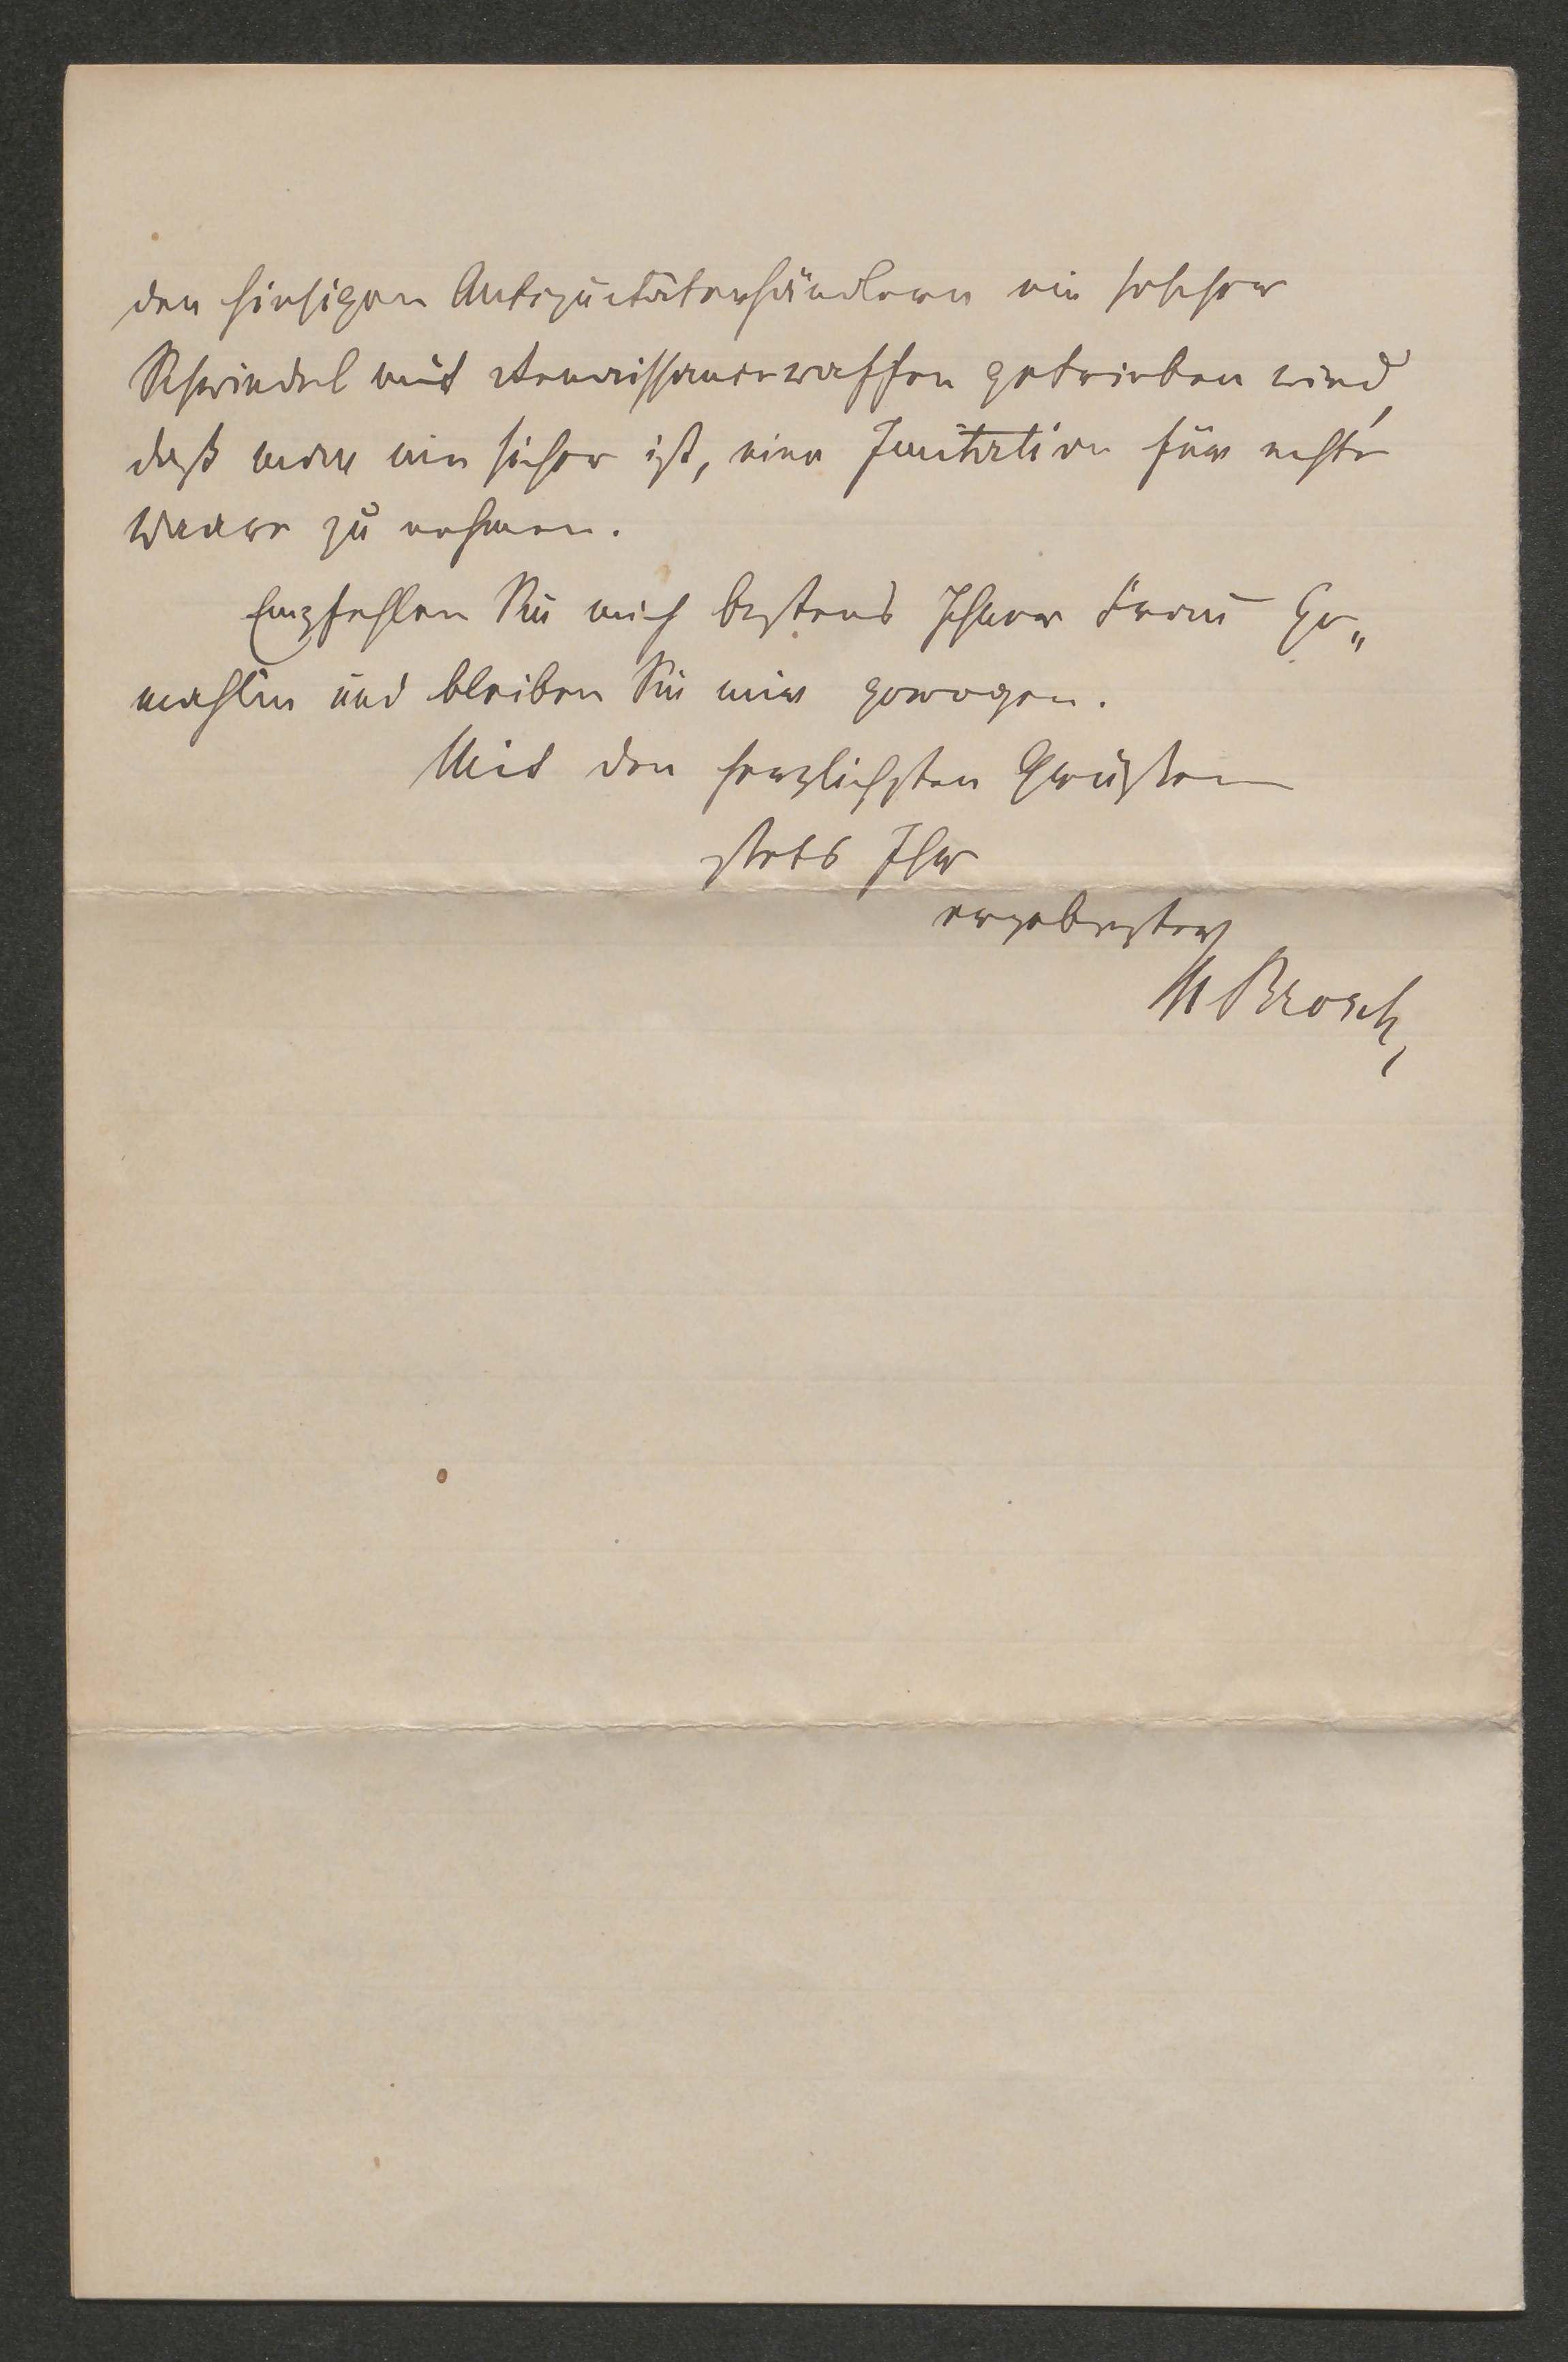 den hiesigen Antiquitätenhändlern ein solcher
Schwindel mit Renaissancewaffen getrieben wird,
daß man nie sicher ist, eine Imitation für echte
Waare zu nehmen.
Empfehlen Sie mich bestens Ihrer Frau Ge„
mahlin und bleiben Sie mir gewogen.
Mit den herzlichsten Grüßen
stets Ihr
ergebenster
M Brosch